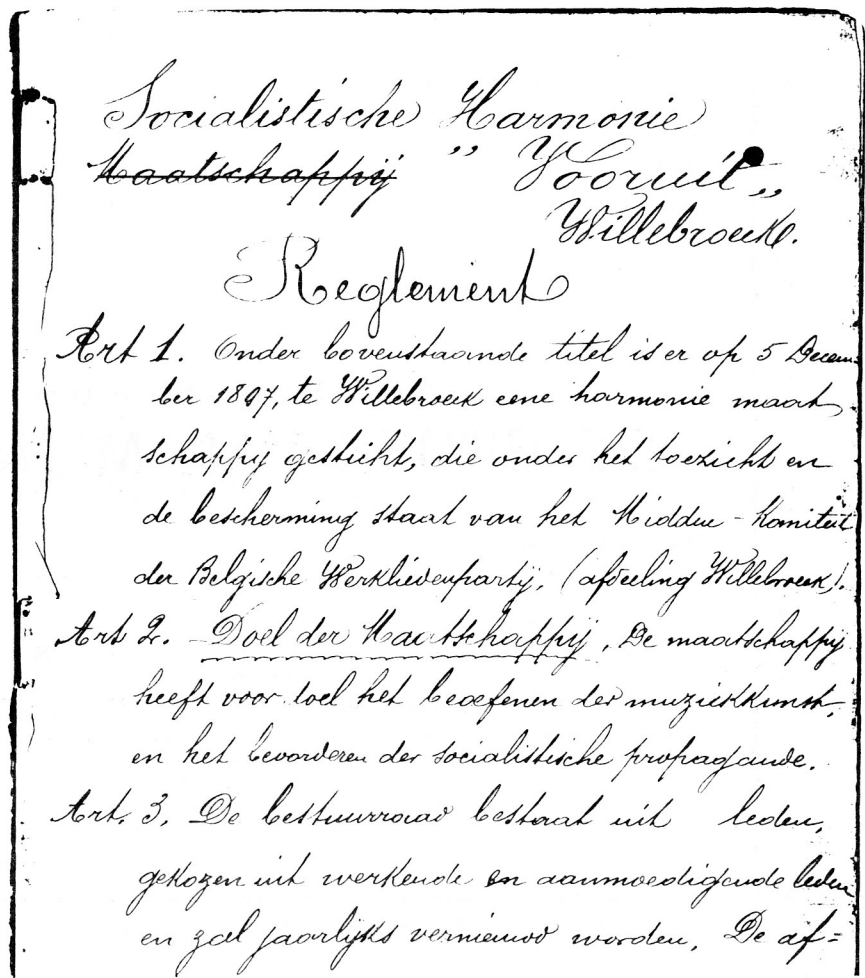 Socialistische Harmonie
Maatschappij „ Vooruit „
Willebroeck.
Reglement
Art 1. Onder bovenstaande titel is er op 5 Decem-
ber 1897, te Willebroeck eene harmonie maat
schappij gesticht, die onder het toezicht en
de bescherming staat van het Midden - Komiteit
der Belgische Werkliedenpartij, (afdeeling Willebroeck).
Art 2. Doel der Maatschappij. De maatschappij
heeft voor toel het beoefenen der muziekkunst,
en het bevorderen der socialistische propagande.
Art. 3. De bestuurraad bestaat uit leden,
gekozen uit werkende en aanmoedigende leden
en zal jaarlijks vernieuwd worden. De af=